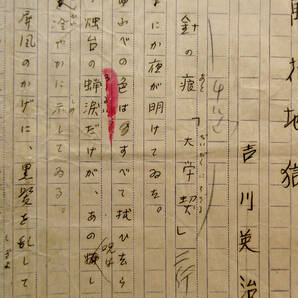 花地獄
吉川英治
針の痕「大学契」二行
にか夜が明けてゐた。
べの色はすべて拭ひ去ら
燭台の蝋涙だけが、あの
冷やかに示してゐる。
屏風のかげに、黒髪を乱して